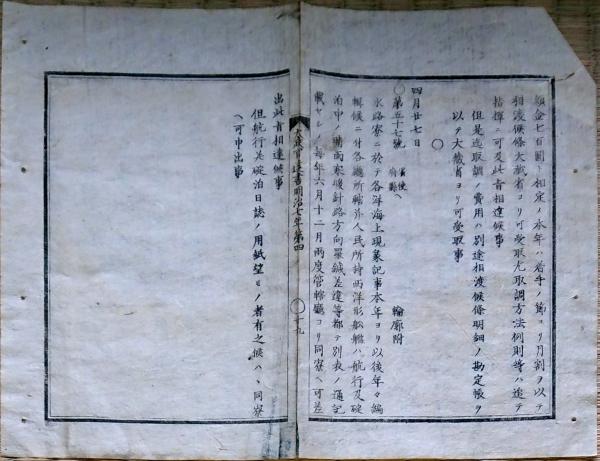 額金七百圓ト相定メ本年ハ着手ノ節ヨリ月割ヲ以テ
相渡候條大藏省ヨリ可受取尤取調方法例則等ハ追テ
指揮ニ可及此旨相達候事
但是迄取調ノ費用ハ別途相渡候條明細ノ勘定帳ヲ
以テ大藏省ヨリ可受取事
○
四月廿七日 輪廓附
○第五十七號 省使 府縣 ヘ
水路寮ニ於テ各洋海上現象記事本年ヨリ以後年々編
輯候ニ付各廳所轄并人民所持西洋形船艦ハ航行及碇
泊中ノ晴雨寒暖針路方向羅鍼差違等都テ別表ノ通記
載セシメ毎年六月十二月兩度管轄廳ヨリ同寮ヘ可差
太政官達書明治七年第四
○十九
出此旨相達候事
但航行并碇泊日誌ノ用紙望ミノ者有之候ハヽ同寮
ヘ可申出事